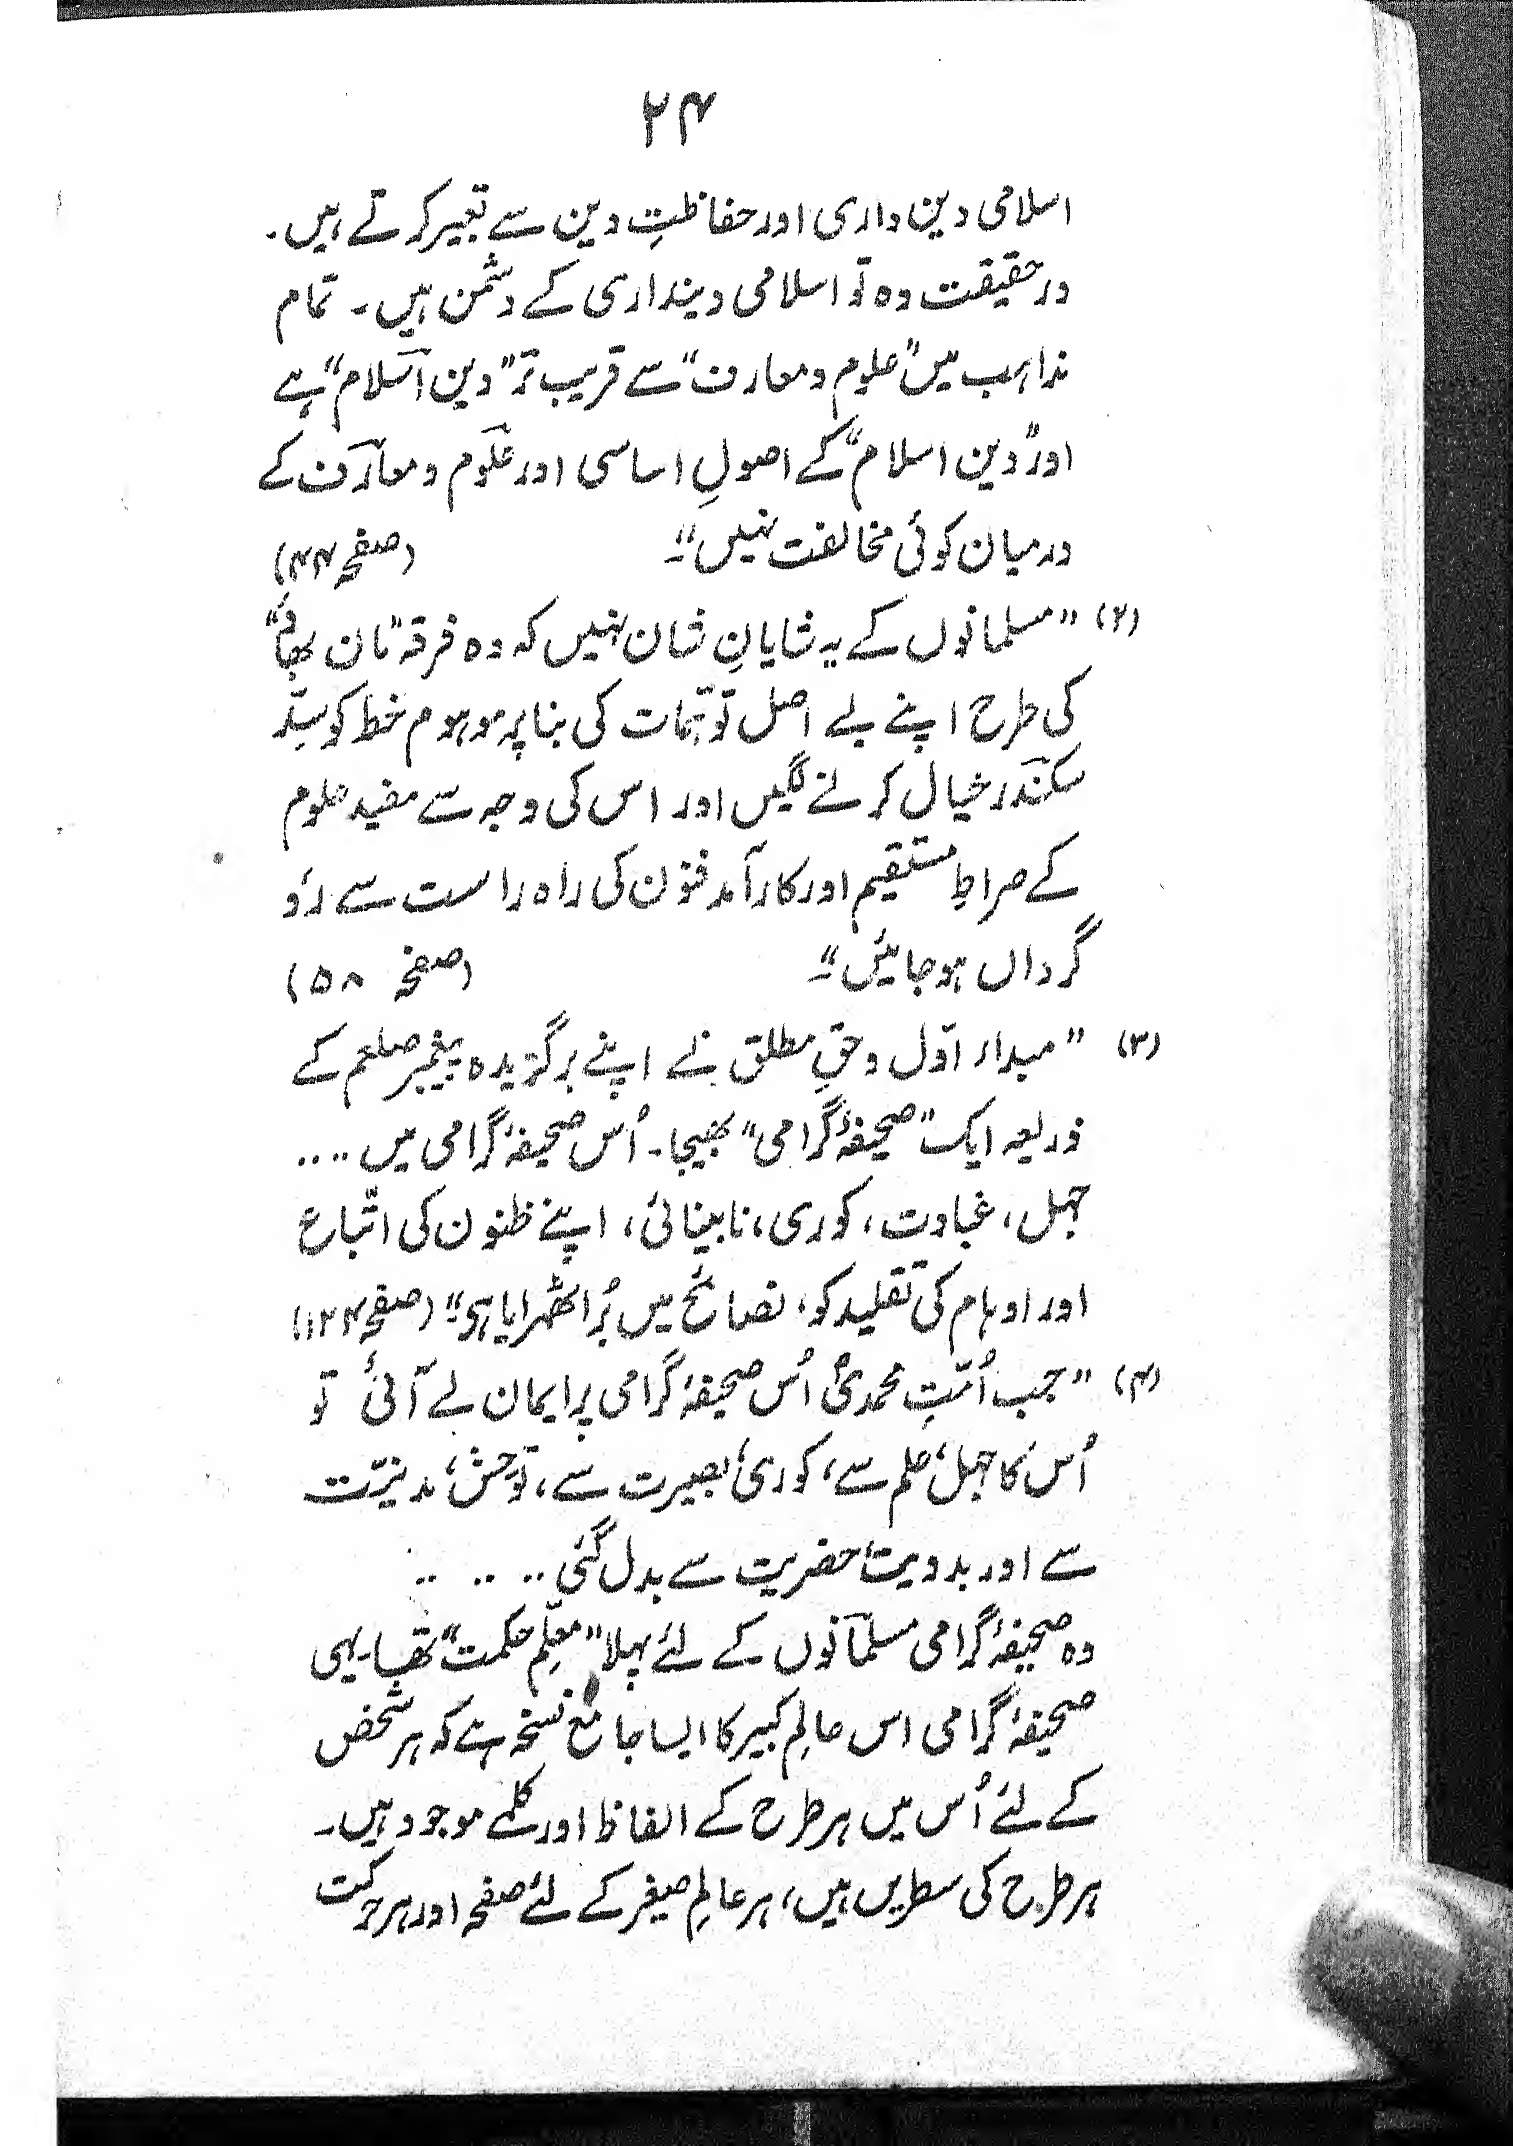 ۲۴
اسلامی دین داری اور حفاظتِ دین سے تعبیر کرتے ہیں۔
درحقیقت وہ تو اسلامی دینداری کے دشمن ہیں۔ تمام
مذاہب میں "علوم و معارف" سے قریب تر "دین اسلام" ہے
اور "دین اسلام" کے اصولِ اساسی اور علوم و معارف کے
درمیان کوئی مخالفت نہیں"۔ (صفحہ ۴۴)
(۲) "مسلمانوں کے یہ شایانِ شان نہیں کہ وہ فرقہ "نان بھائی"
کی طرح اپنے بے اصل توہّمات کی بنا پر موہوم خط کو سدِّ
سکندر خیال کرنے لگیں اور اس کی وجہ سے مفید علوم
کے صراطِ مستقیم اور کارآمد فنون کی راہ راست سے رو
گرداں ہو جائیں"۔ (صفحہ ۵۸)
(۳) "مبداء اوّل و حقِ مطلق نے اپنے برگزیدہ پیغمبر صلعم کے
ذریعہ ایک "صحیفۂ گرامی" بھیجا۔ اُس صحیفۂ گرامی میں ....
جہل، غباوت، کوری، نابینائی، اپنے ظنون کی اتّباع
اور اوہام کی تقلید کو، نصائح میں بُرا ٹھہرایا ہی"۔ (صفحہ ۱۲۴)
(۴) "جب اُمّتِ محمدیؐ اُس صحیفۂ گرامی پر ایمان لے آئی تو
اُس کا جہل، علم سے، کوری، بصیرت سے، توحش، مدنیّت
سے اور بدویت، حضریت سے بدل گئی .. .. ..
وہ صحیفۂ گرامی مسلمانوں کے لئے پہلا "معلّمِ حکمت" تھا۔ یہی
صحیفۂ گرامی اس عالمِ کبیر کا ایسا جامع نسخہ ہے کہ ہر شخص
کے لئے اُس میں ہر طرح کے الفاظ اور کلمے موجود ہیں۔
ہر طرح کی سطریں ہیں، ہر عالمِ صیغر کے لئے صفحہ اور ہر حرکت